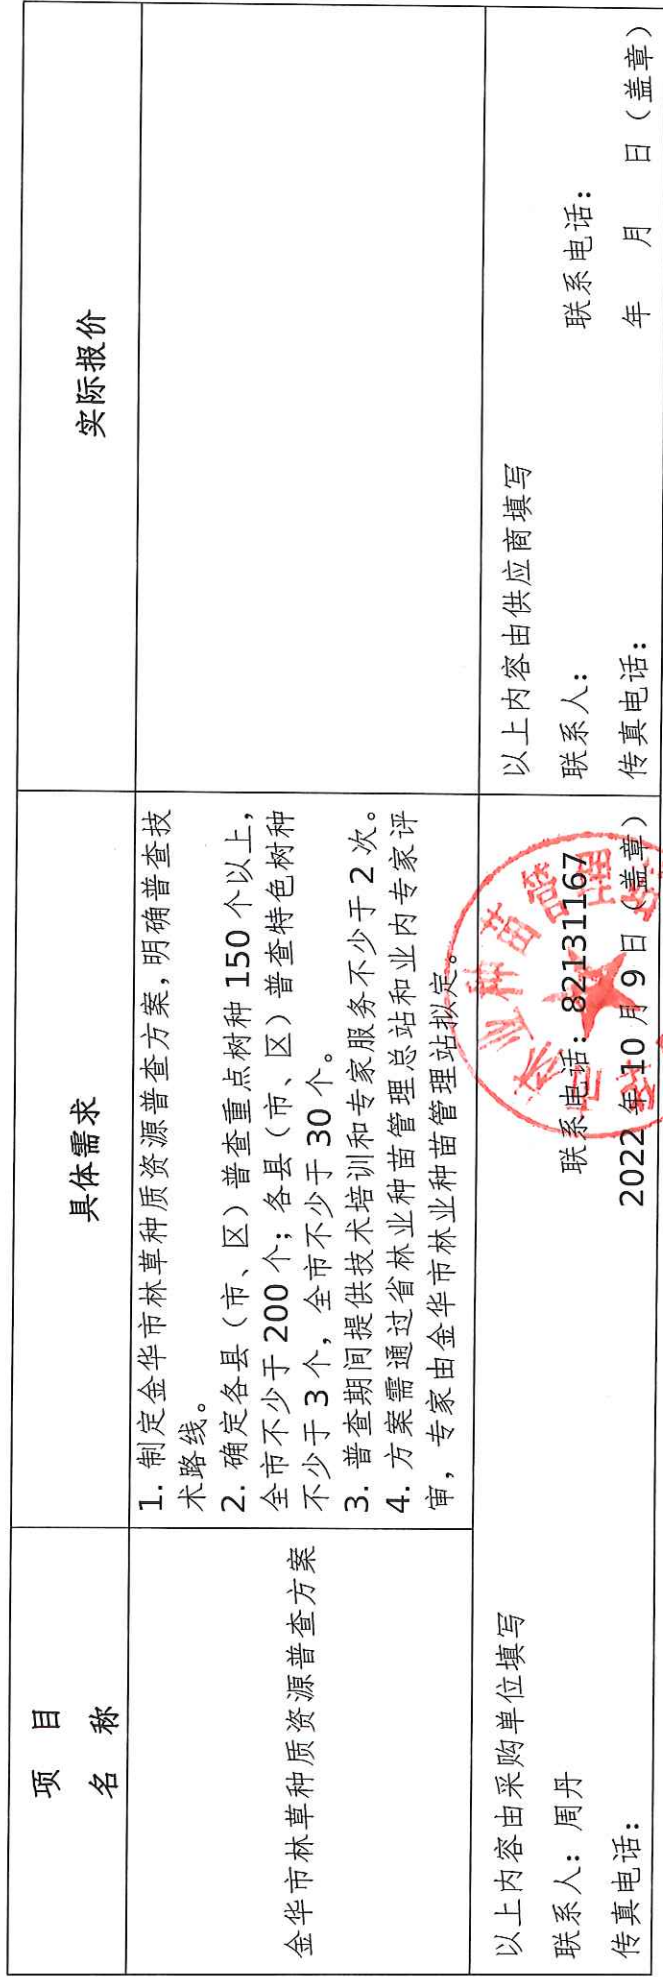 项 目
名 称
具体需求
实际报价
金华市林草种质资源普查方案
1. 制定金华市林草种质资源普查方案，明确普查技
术路线。
2. 确定各县（市、区）普查重点树种 150 个以上，
全市不少于 200 个；各县（市、区）普查特色树种
不少于 3 个，全市不少于 30 个。
3. 普查期间提供技术培训和专家服务不少于 2 次。
4. 方案需通过省林业种苗管理总站和业内专家评
审，专家由金华市林业种苗管理站拟定。
以上内容由采购单位填写
联系人：周丹 联系电话：82131167
传真电话： 2022 年 10 月 9 日（盖章）
以上内容由供应商填写
联系人： 联系电话：
传真电话： 年 月 日（盖章）
华市林业种苗管理